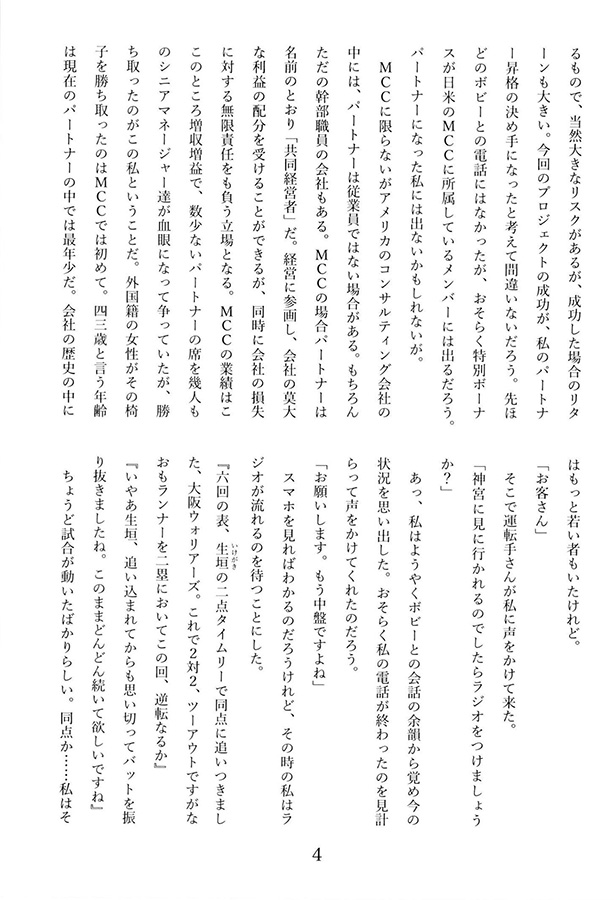 るもので、当然大きなリスクがあるが、成功した場合のリタ
ーンも大きい。今回のプロジェクトの成功が、私のパートナ
ー昇格の決め手になったと考えて間違いないだろう。先ほ
どのボビーとの電話にはなかったが、おそらく特別ボーナ
スが日米のMCCに所属しているメンバーには出るだろう。
パートナーになった私には出ないかもしれないが。
MCCに限らないがアメリカのコンサルティング会社の
中には、パートナーは従業員ではない場合がある。もちろん
ただの幹部職員の会社もある。MCCの場合パートナーは
名前のとおり「共同経営者」だ。経営に参画し、会社の莫大
な利益の配分を受けることができるが、同時に会社の損失
に対する無限責任をも負う立場となる。MCCの業績はこ
このところ増収増益で、数少ないパートナーの席を幾人も
のシニアマネージャー達が血眼になって争っていたが、勝
ち取ったのがこの私ということだ。外国籍の女性がその椅
子を勝ち取ったのはMCCでは初めて。四三歳と言う年齢
は現在のパートナーの中では最年少だ。会社の歴史の中に
はもっと若い者もいたけれど。
「お客さん」
そこで運転手さんが私に声をかけて来た。
「神宮に見に行かれるのでしたらラジオをつけましょう
か?」
あっ、私はようやくボビーとの会話の余韻から覚め今の
状況を思い出した。おそらく私の電話が終わったのを見計
らって声をかけてくれたのだろう。
「お願いします。もう中盤ですよね」
スマホを見ればわかるのだろうけれど、その時の私はラ
ジオが流れるのを待つことにした。
『六回の表、生垣の二点タイムリーで同点に追いつきまし
いけがき
た、大阪ウォリアーズ。これで2対2、ツーアウトですがな
おもランナーを二塁においてこの回、逆転なるか』
『いやあ生垣、追い込まれてからも思い切ってバットを振
り抜きましたね。このままどんどん続いて欲しいですね』
ちょうど試合が動いたばかりらしい。同点か……私はそ
4